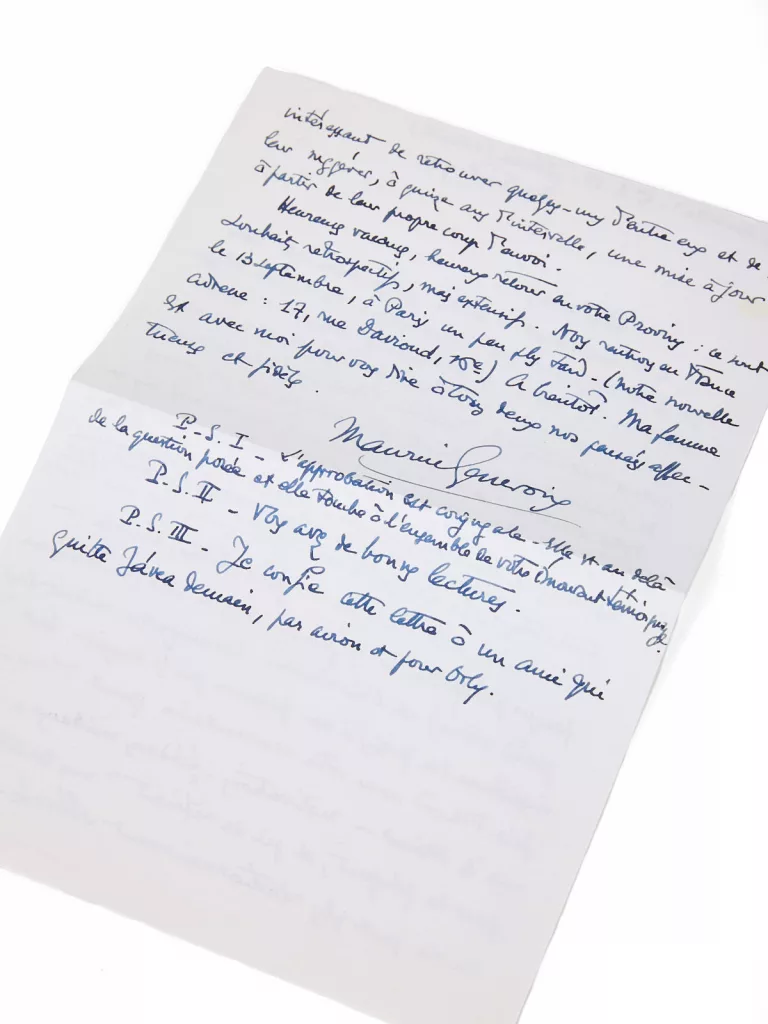 intéressant de retrouver quelques-uns d'entre eux et de
leur suggérer, à quinze ans d'intervalle, une mise à jour
à partir de leur propre coup d'envoi.
Heureuses vacances, heureux retour en votre Provins : ce sont
souhaits rétrospectifs, mais extensifs. Nous rentrons en France
le 13 septembre, à Paris un peu plus tard. (notre nouvelle
adresse : 17, rue Davioud, 16e) A bientôt. Ma femme
est avec moi pour vous dire à tous deux nos pensées affec-
tueuses et fidèles.
Maurice Genevoix
P.S. I - L'approbation est conjugale. Elle va au delà
de la question posée et elle s'étend à l'ensemble de votre émouvant témoignage.
P.S. II - Vous avez de bonnes lectures.
P.S. III - Je confie cette lettre à un ami qui
quitte Jávea demain, par avion et pour Orly.